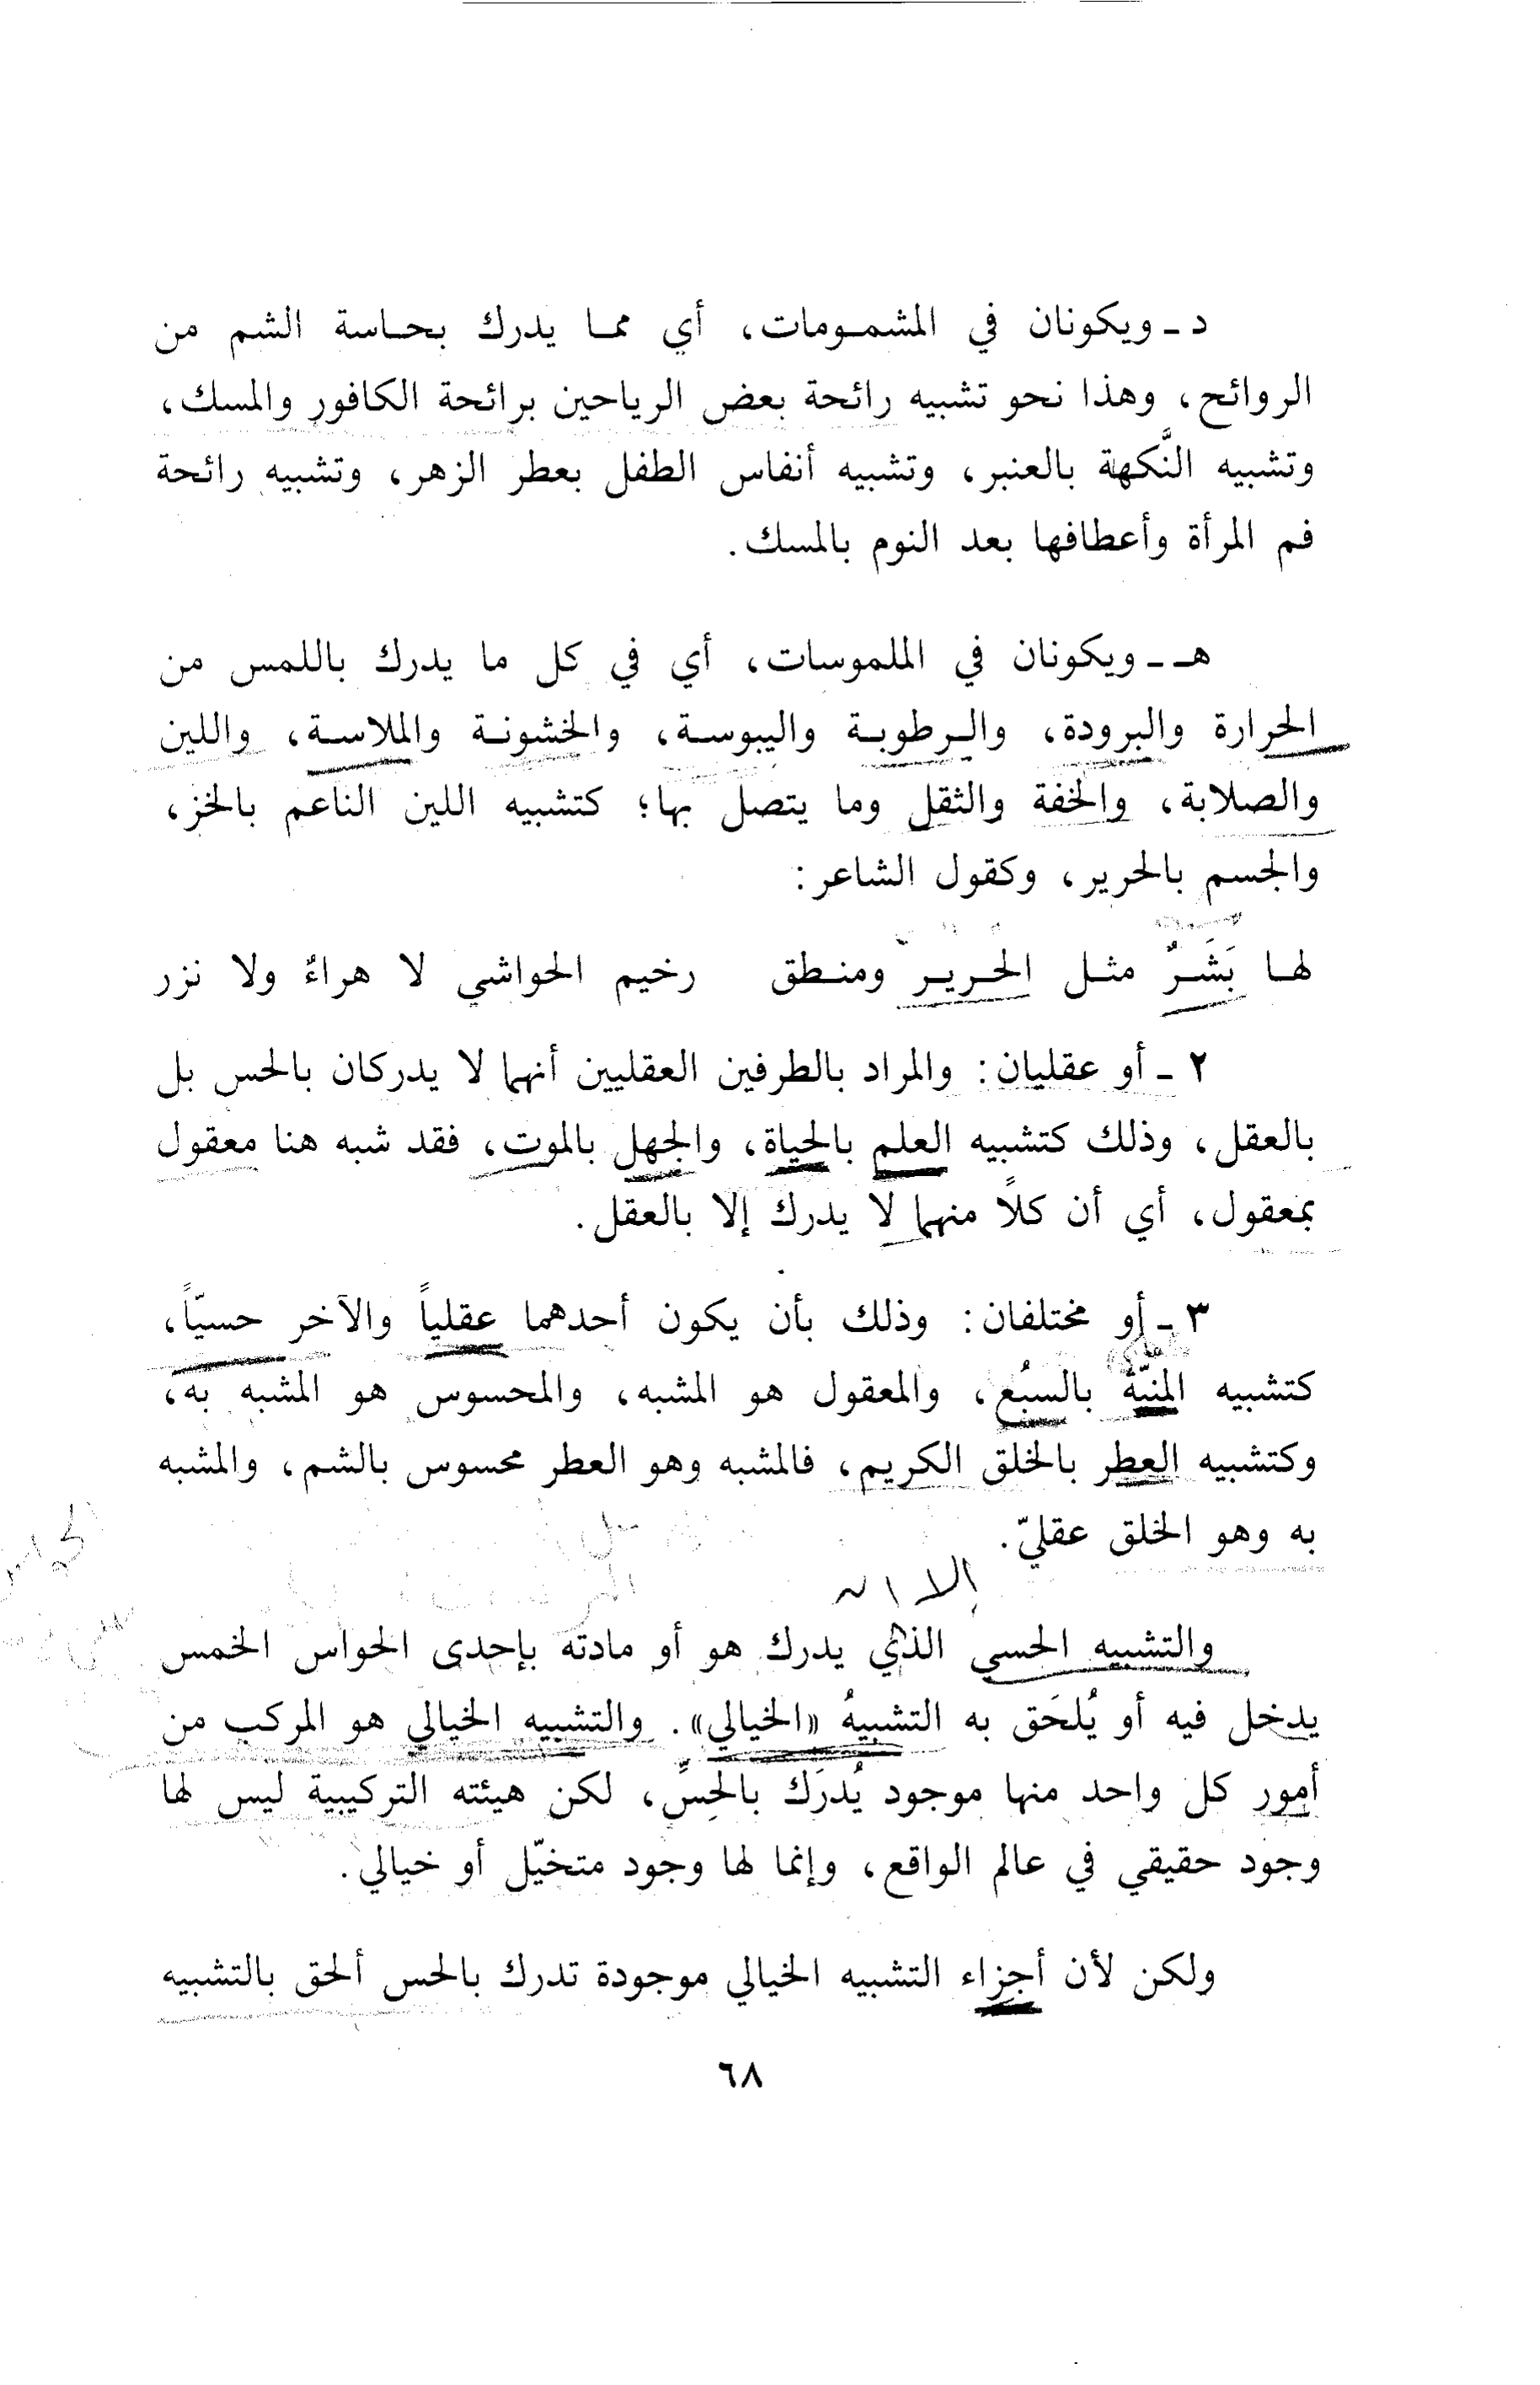 د ـ ويكونان في المشمـومات، أي ممـا يدرك بحـاسة الشم من
الروائح، وهذا نحو تشبيه رائحة بعض الرياحين برائحة الكافور والمسك،
وتشبيه النَّكهة بالعنبر، وتشبيه أنفاس الطفل بعطر الزهر، وتشبيه رائحة
فم المرأة وأعطافها بعد النوم بالمسك.
هـ ـ ويكونان في الملموسات، أي في كل ما يدرك باللمس من
الحرارة والبرودة، والـرطوبـة واليبوسـة، والخشونـة والملاسـة، واللين
والصلابة، والخفة والثقل وما يتصل بها؛ كتشبيه اللين الناعم بالخز،
والجسم بالحرير، وكقول الشاعر:
لهـا بَشَـرٌ مثـل الحـريـر ومنـطق رخيم الحواشي لا هراءٌ ولا نزر
٢ ـ أو عقليان: والمراد بالطرفين العقليين أنهما لا يدركان بالحس بل
بالعقل، وذلك كتشبيه العلم بالحياة، والجهل بالموت، فقد شبه هنا معقول
بمعقول، أي أن كلاً منهما لا يدرك إلا بالعقل.
٣ ـ أو مختلفان: وذلك بأن يكون أحدهما عقلياً والآخر حسيّاً،
كتشبيه المنيّة بالسبُع، والمعقول هو المشبه، والمحسوس هو المشبه به،
وكتشبيه العطر بالخلق الكريم، فالمشبه وهو العطر محسوس بالشم، والمشبه
به وهو الخلق عقليّ.
والتشبيه الحسي الذي يدرك هو أو مادته بإحدى الحواس الخمس
يدخل فيه أو يُلحَق به التشبيهُ «الخيالي». والتشبيه الخيالي هو المركب من
أمور كل واحد منها موجود يُدرَك بالحِسِّ، لكن هيئته التركيبية ليس لها
وجود حقيقي في عالم الواقع، وإنما لها وجود متخيّل أو خيالي.
ولكن لأن أجزاء التشبيه الخيالي موجودة تدرك بالحس ألحق بالتشبيه
٦٨